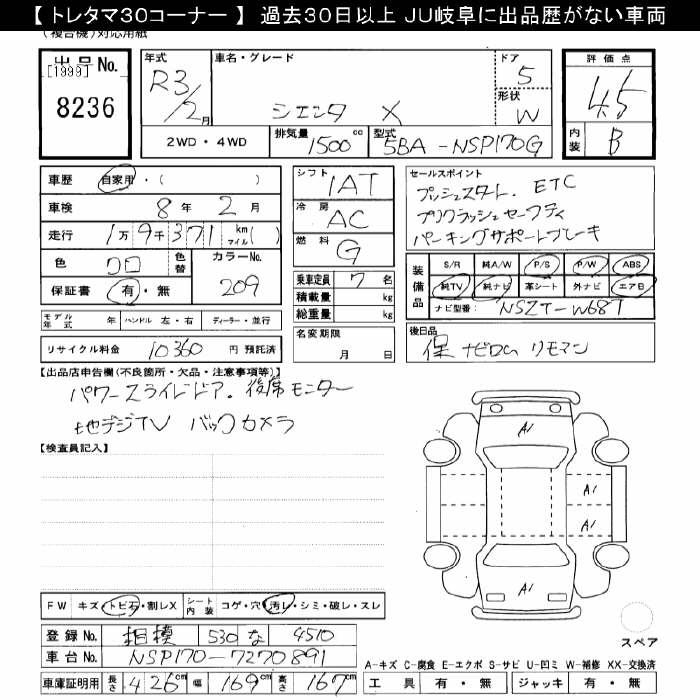 【 トレタマ30コーナー 】 過去30日以上 JU岐阜に出品歴がない車両
(複合機)対応用紙
出品No.
[1999]
8236
年式 R3/2月
車名・グレード シエンタ X
ドア 5
形状 W
評価点 4.5
内装 B
2WD・4WD
排気量 1500cc
型式 5BA-NSP170G
車歴 自家用・( )
車検 8年 2月
走行 1万9千371 km マイル( )
色 クロ 色替 カラーNo. 209
保証書 有・無
シフト IAT
冷房 AC
燃料 G
乗車定員 7名
積載量 kg
総重量 kg
名変期限 月 日
セールスポイント
プッシュスタート. ETC
プリクラッシュセーフティ
パーキングサポートブレーキ
装備品 S/R 純A/W P/S P/W ABS
純TV 純ナビ 革シート 外ナビ エアB
ナビ型番 NSZT-W68T
モデル年式 年 ハンドル 左・右 ディーラー・並行
リサイクル料金 10360 円 預託済
後日品
保 ナビROM リモマン
【出品店申告欄(不良箇所・欠品・注意事項等)】
パワースライドドア. 後席モニター
地デジTV バックカメラ
【検査員記入】
A1
A1
A1
A1
FW キズ・トビ石・割レX シート内装 コゲ・穴・汚レ・シミ・破レ・スレ
登録No. 相模 530 な 4510
車台No. NSP170-7270891
車庫証明用 長さ 426cm 幅 169cm 高さ 167cm
スペア
A-キズ C-腐食 E-エクボ S-サビ U-凹ミ W-補修 XX-交換済
工具 有・無 ジャッキ 有・無